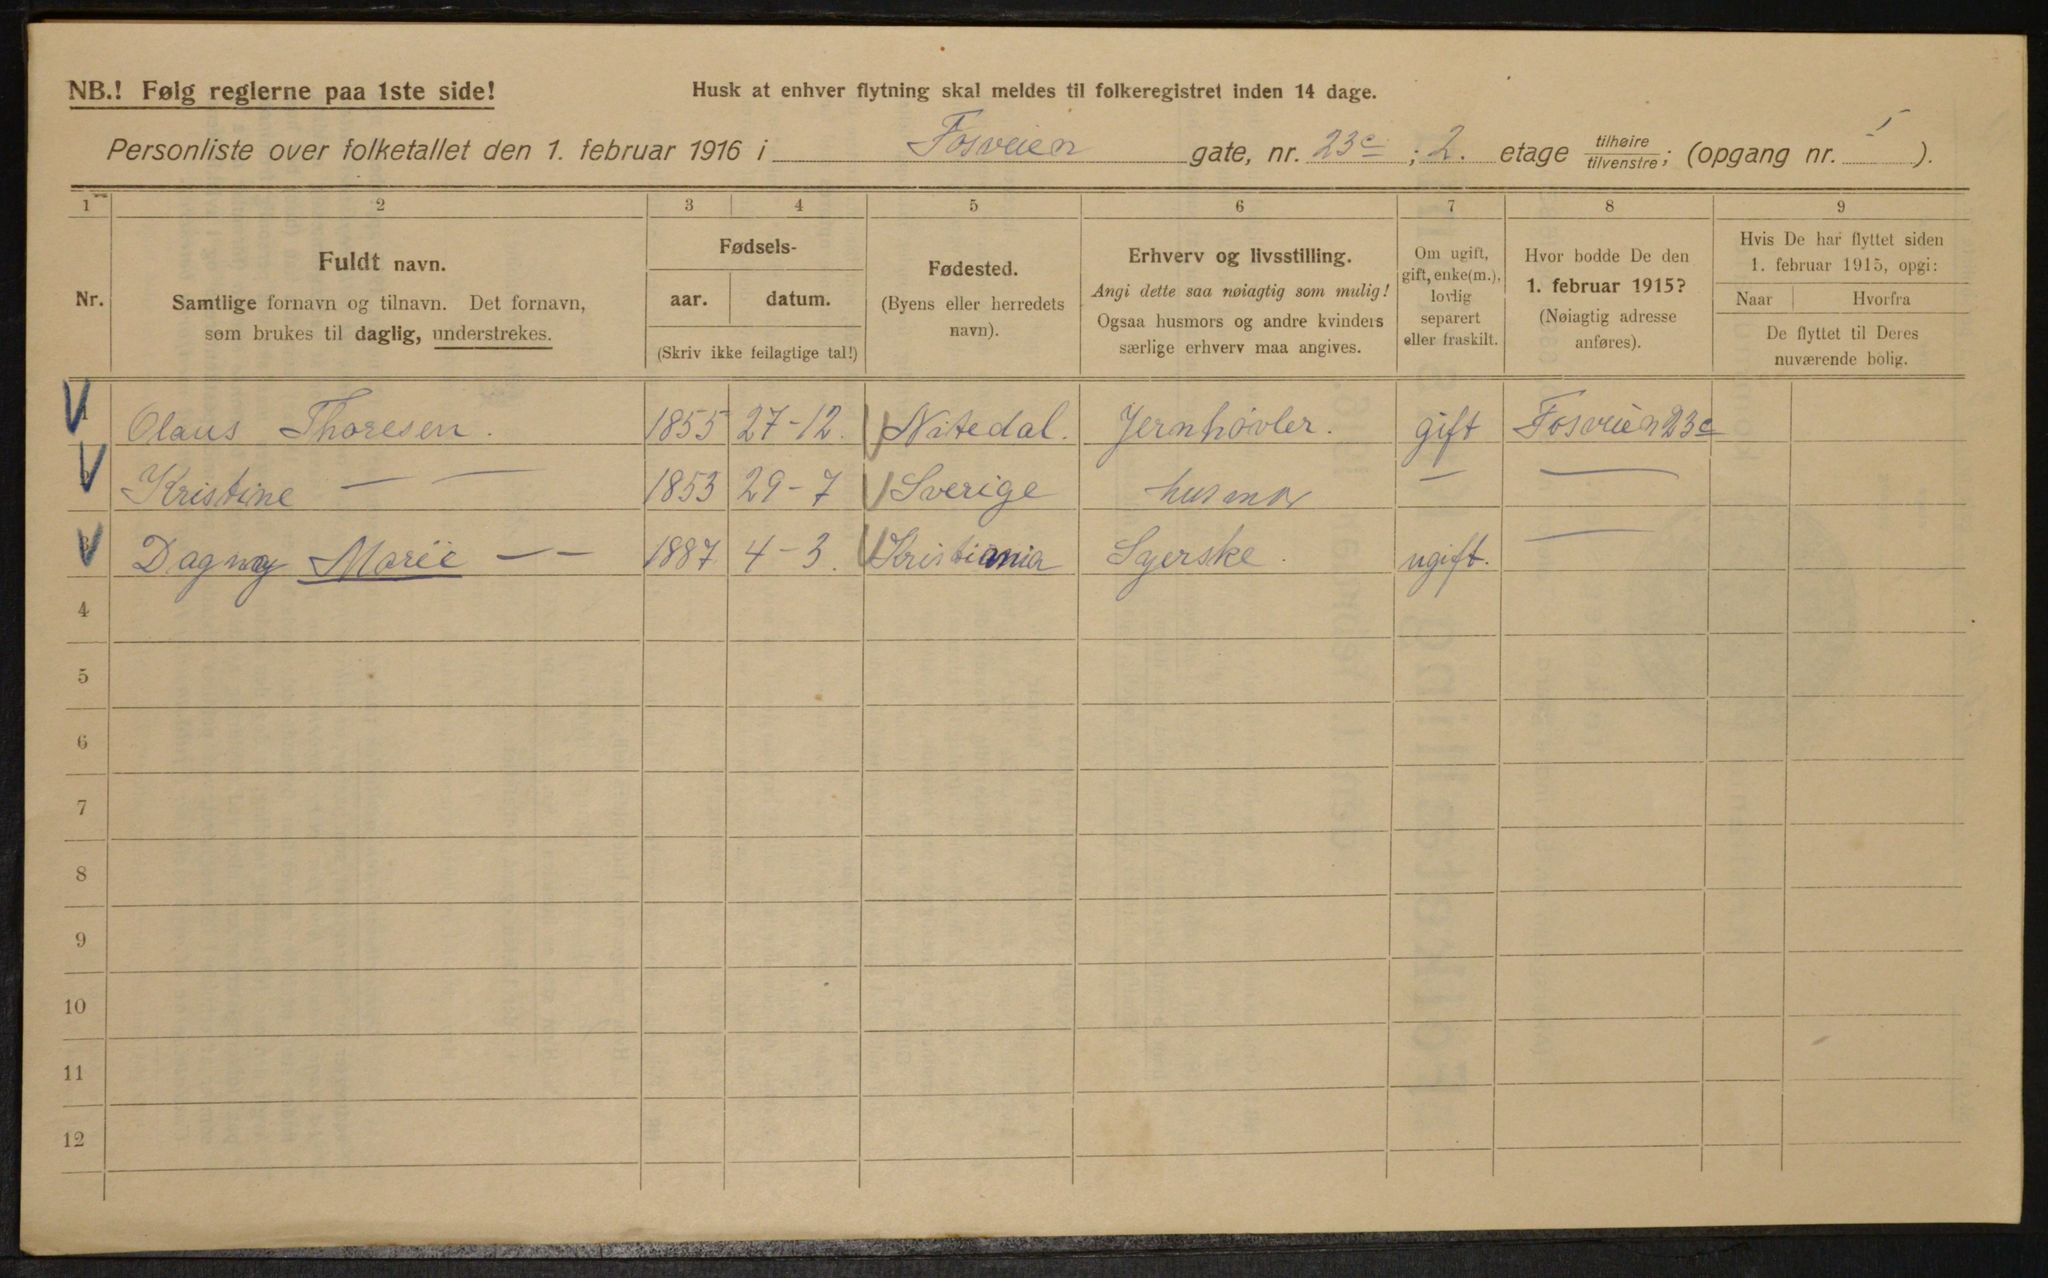 NB.! Følg reglerne paa 1ste side!
Husk at enhver flytning skal meldes til folkeregistret inden 14 dage.
Personliste over folketallet den 1. februar 1916 i Fosveien gate, nr. 23c; 2. etage tilhøire/tilvenstre; (opgang nr. ).
1 2 3 4 5 6 7 8 9
Nr.
Fuldt navn.
Samtlige fornavn og tilnavn. Det fornavn,
som brukes til daglig, understrekes.
Fødsels-
aar. datum.
(Skriv ikke feilagtige tal!)
Fødested.
(Byens eller herredets
navn).
Erhverv og livsstilling.
Angi dette saa nøiagtig som mulig!
Ogsaa husmors og andre kvinders
særlige erhverv maa angives.
Om ugift,
gift, enke(m.),
lovlig
separert
eller fraskilt.
Hvor bodde De den
1. februar 1915?
(Nøiagtig adresse
anføres).
Hvis De har flyttet siden
1. februar 1915, opgi:
Naar Hvorfra
De flyttet til Deres
nuværende bolig.
1 Olaus Thoresen. 1855 27-12. Nitedal. Jernhøvler. gift Fosveien 23c
2 Kristine — — 1853 29-7 Sverige husmor — —
3 Dagny Marie — — 1887 4-3. Kristiania Syerske. ugift. —
4
5
6
7
8
9
10
11
12